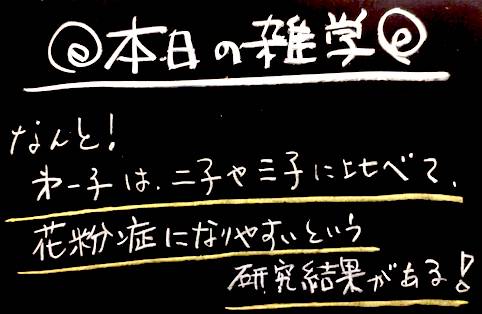 本日の雑学
なんと!
第一子は、二子や三子に比べて、
花粉症になりやすいという
研究結果がある!